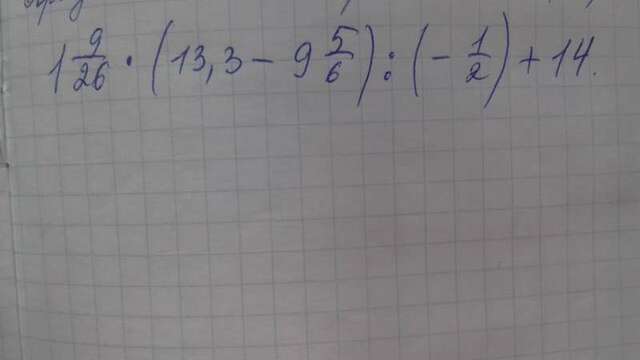 1 9/26 · (13,3 − 9 5/6) : (− 1/2) + 14.